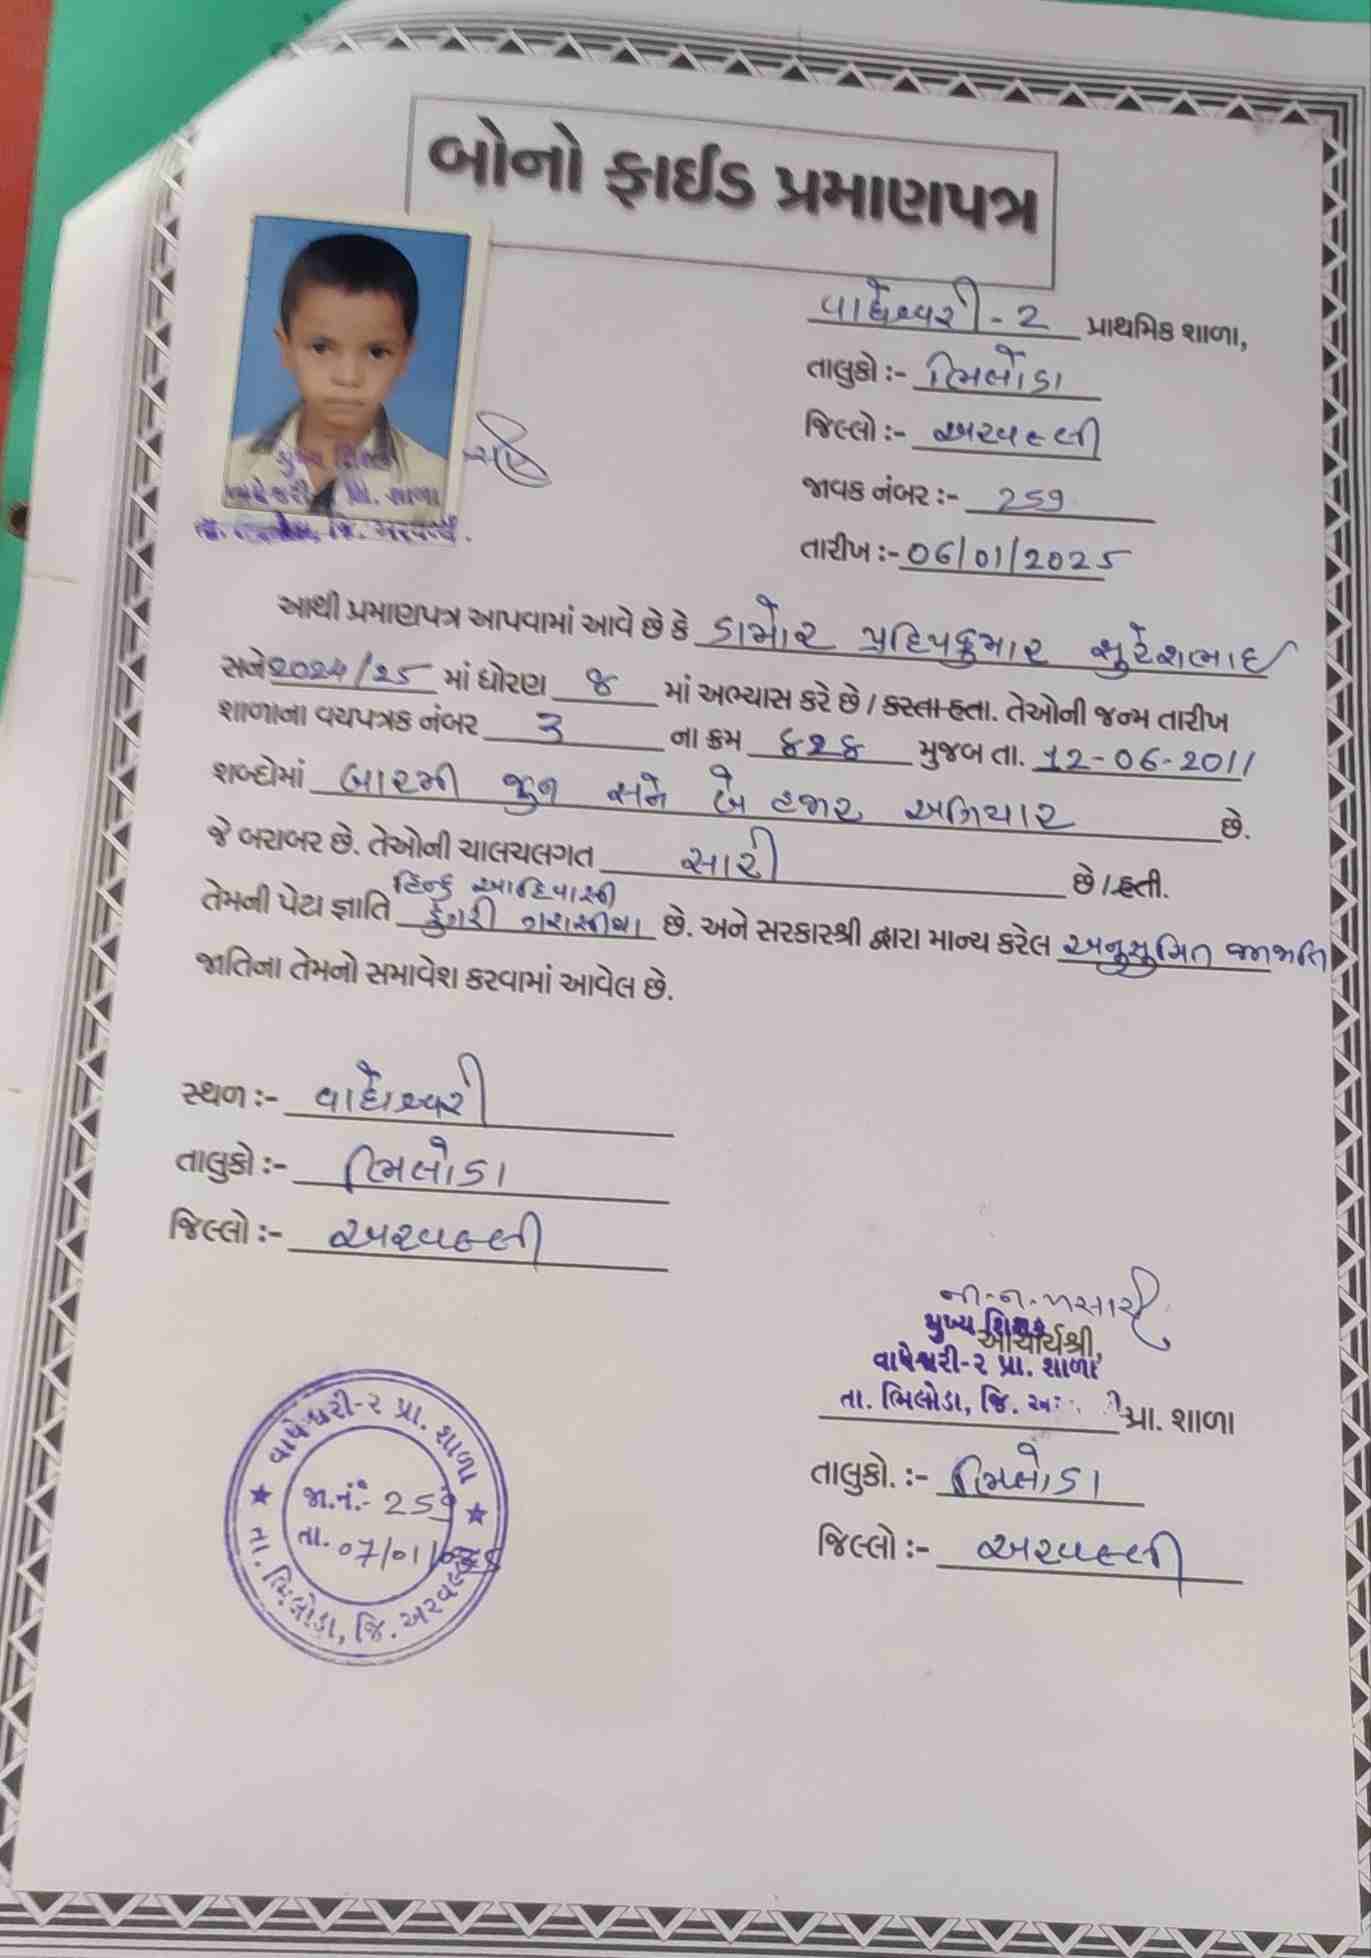 બોનો ફાઈડ પ્રમાણપત્ર
વાઘેશ્વરી - 2 પ્રાથમિક શાળા,
તાલુકો :- ભિલોડા
જિલ્લો :- અરવલ્લી
જાવક નંબર :- 259
તારીખ :- 06/01/2025
મુખ્ય શિક્ષક
વાઘેશ્વરી પ્રા. શાળા
તા. જિ. અરવલ્લી.
આથી પ્રમાણપત્ર આપવામાં આવે છે કે ડામોર પ્રદિપકુમાર સુરેશભાઈ
સને 2024/25 માં ધોરણ ૮ માં અભ્યાસ કરે છે / કરતા હતા. તેઓની જન્મ તારીખ
શાળાના વયપત્રક નંબર 3 ના ક્રમ ૬૨૬ મુજબ તા. 12-06-2011
શબ્દોમાં બારમી જુન સને બે હજાર અગિયાર છે.
જે બરાબર છે. તેઓની ચાલચલગત સારી છે / હતી.
હિન્દુ આદિવાસી
તેમની પેટા જ્ઞાતિ ડુંગરી ગરાસીયા છે. અને સરકારશ્રી દ્વારા માન્ય કરેલ અનુસુચિત જનજાતિ
જાતિના તેમનો સમાવેશ કરવામાં આવેલ છે.
સ્થળ :- વાઘેશ્વરી
તાલુકો :- ભિલોડા
જિલ્લો :- અરવલ્લી
મુખ્ય શિક્ષક
આચાર્યશ્રી,
વાઘેશ્વરી-૨ પ્રા. શાળા
તા. ભિલોડા, જિ. પ્રા. શાળા
તાલુકો. :- ભિલોડા
જિલ્લો :- અરવલ્લી
વાઘેશ્વરી-૨ પ્રા. શાળા
જા.નં.- 259
તા. 07/01/
તા. ભિલોડા, જિ. અરવલ્લી